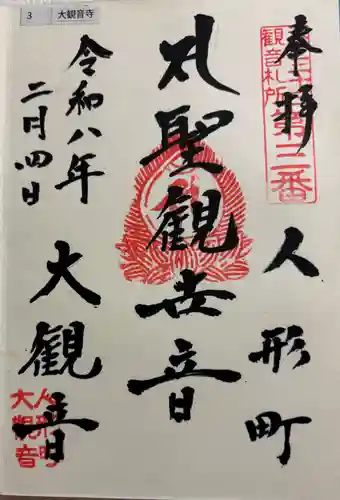 3 大観音寺
奉拝
人形町
聖観世音
大観音
令和八年
二月四日
観音札所
第三番
人形町
大観音